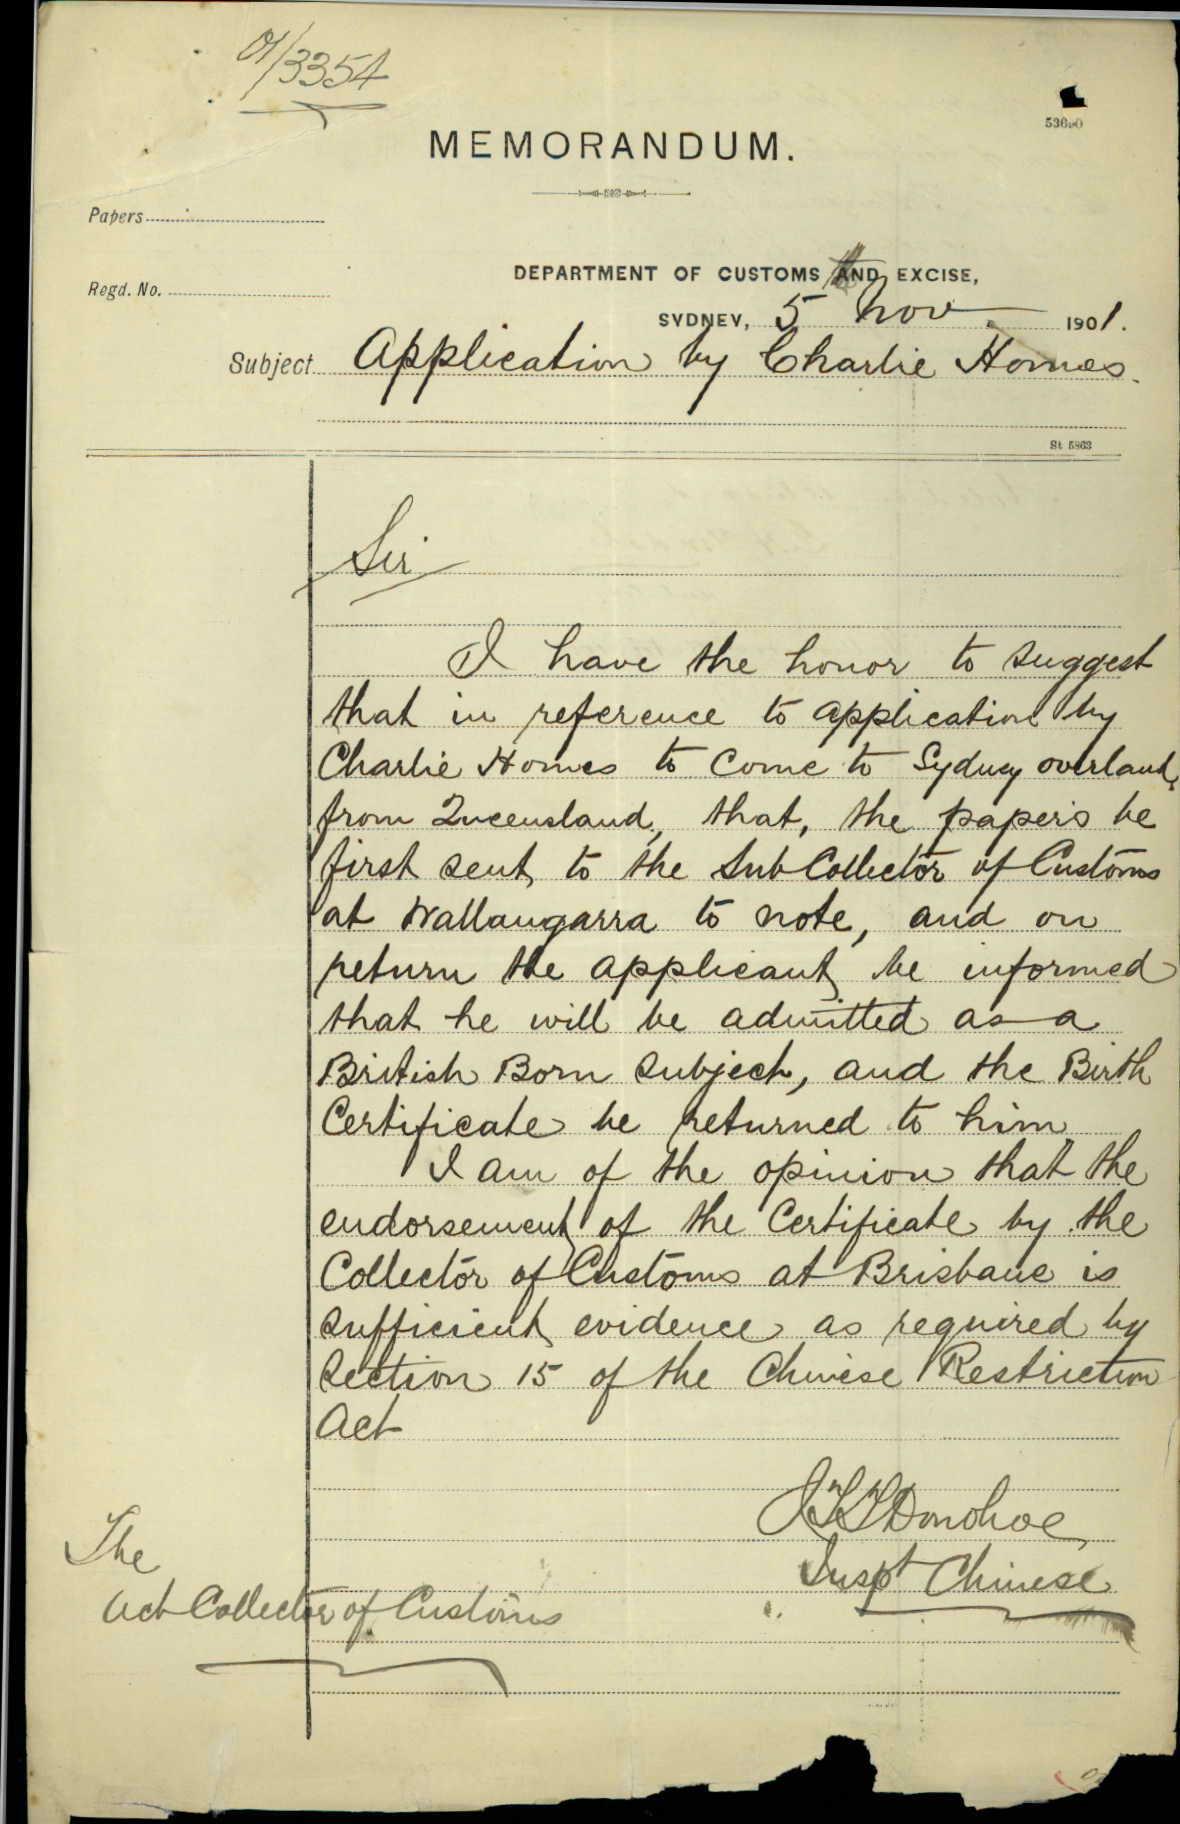 01/3354
MEMORANDUM.
Papers
DEPARTMENT OF CUSTOMS AND EXCISE,
Regd. No.
SYDNEY, 5th Nov 1901.
Subject Application by Charlie Homes.
St 5863
Sir
I have the honor to suggest
that in reference to application by
Charlie Homes to come to Sydney overland,
from Queensland, that, the papers be
first sent to the Sub Collector of Customs
at Wallangarra to note, and on
return the applicant be informed
that he will be admitted as a
British Born subject, and the Birth
Certificate be returned to him
I am of the opinion that the
endorsement of the Certificate by the
Collector of Customs at Brisbane is
sufficient evidence as required by
Section 15 of the Chinese Restriction
Act
Donohoe
Inspt Chinese
The
Act Collector of Customs